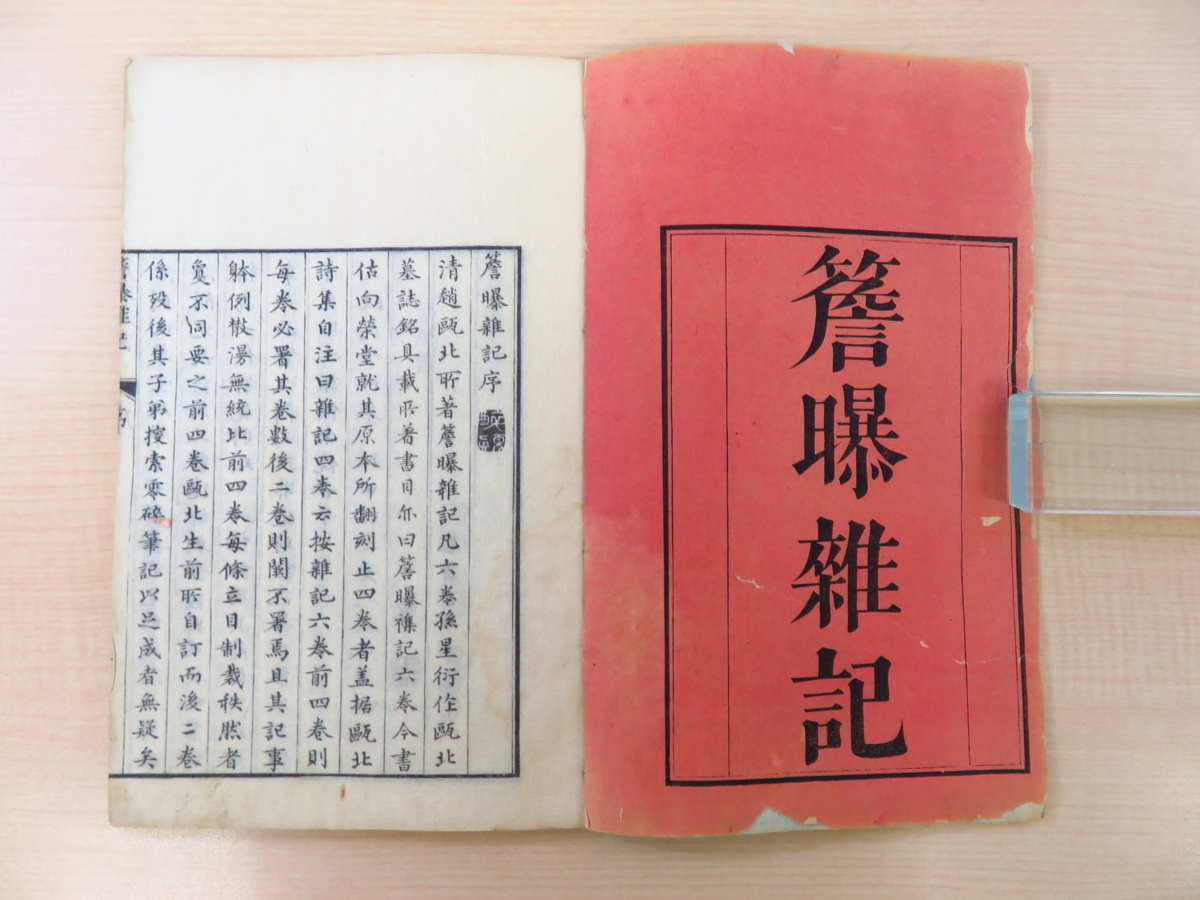 簷曝雜記
簷曝雜記序
清趙甌北所著簷曝雜記凡六卷孫星衍作甌北
墓誌銘具載所著書目亦曰簷曝襍記六卷今書
估向榮堂就其原本所翻刻止四卷者盖据甌北
詩集自注曰雜記四卷云按雜記六卷前四卷則
每卷必署其卷數後二卷則闕不署焉且其記事
躰例散漫無統比前四卷每條立目制裁秩然者
敻不同要之前四卷甌北生前所自訂而後二卷
係歿後其子弟搜索零碎筆記以足成者無疑矣
簷曝雜記
序